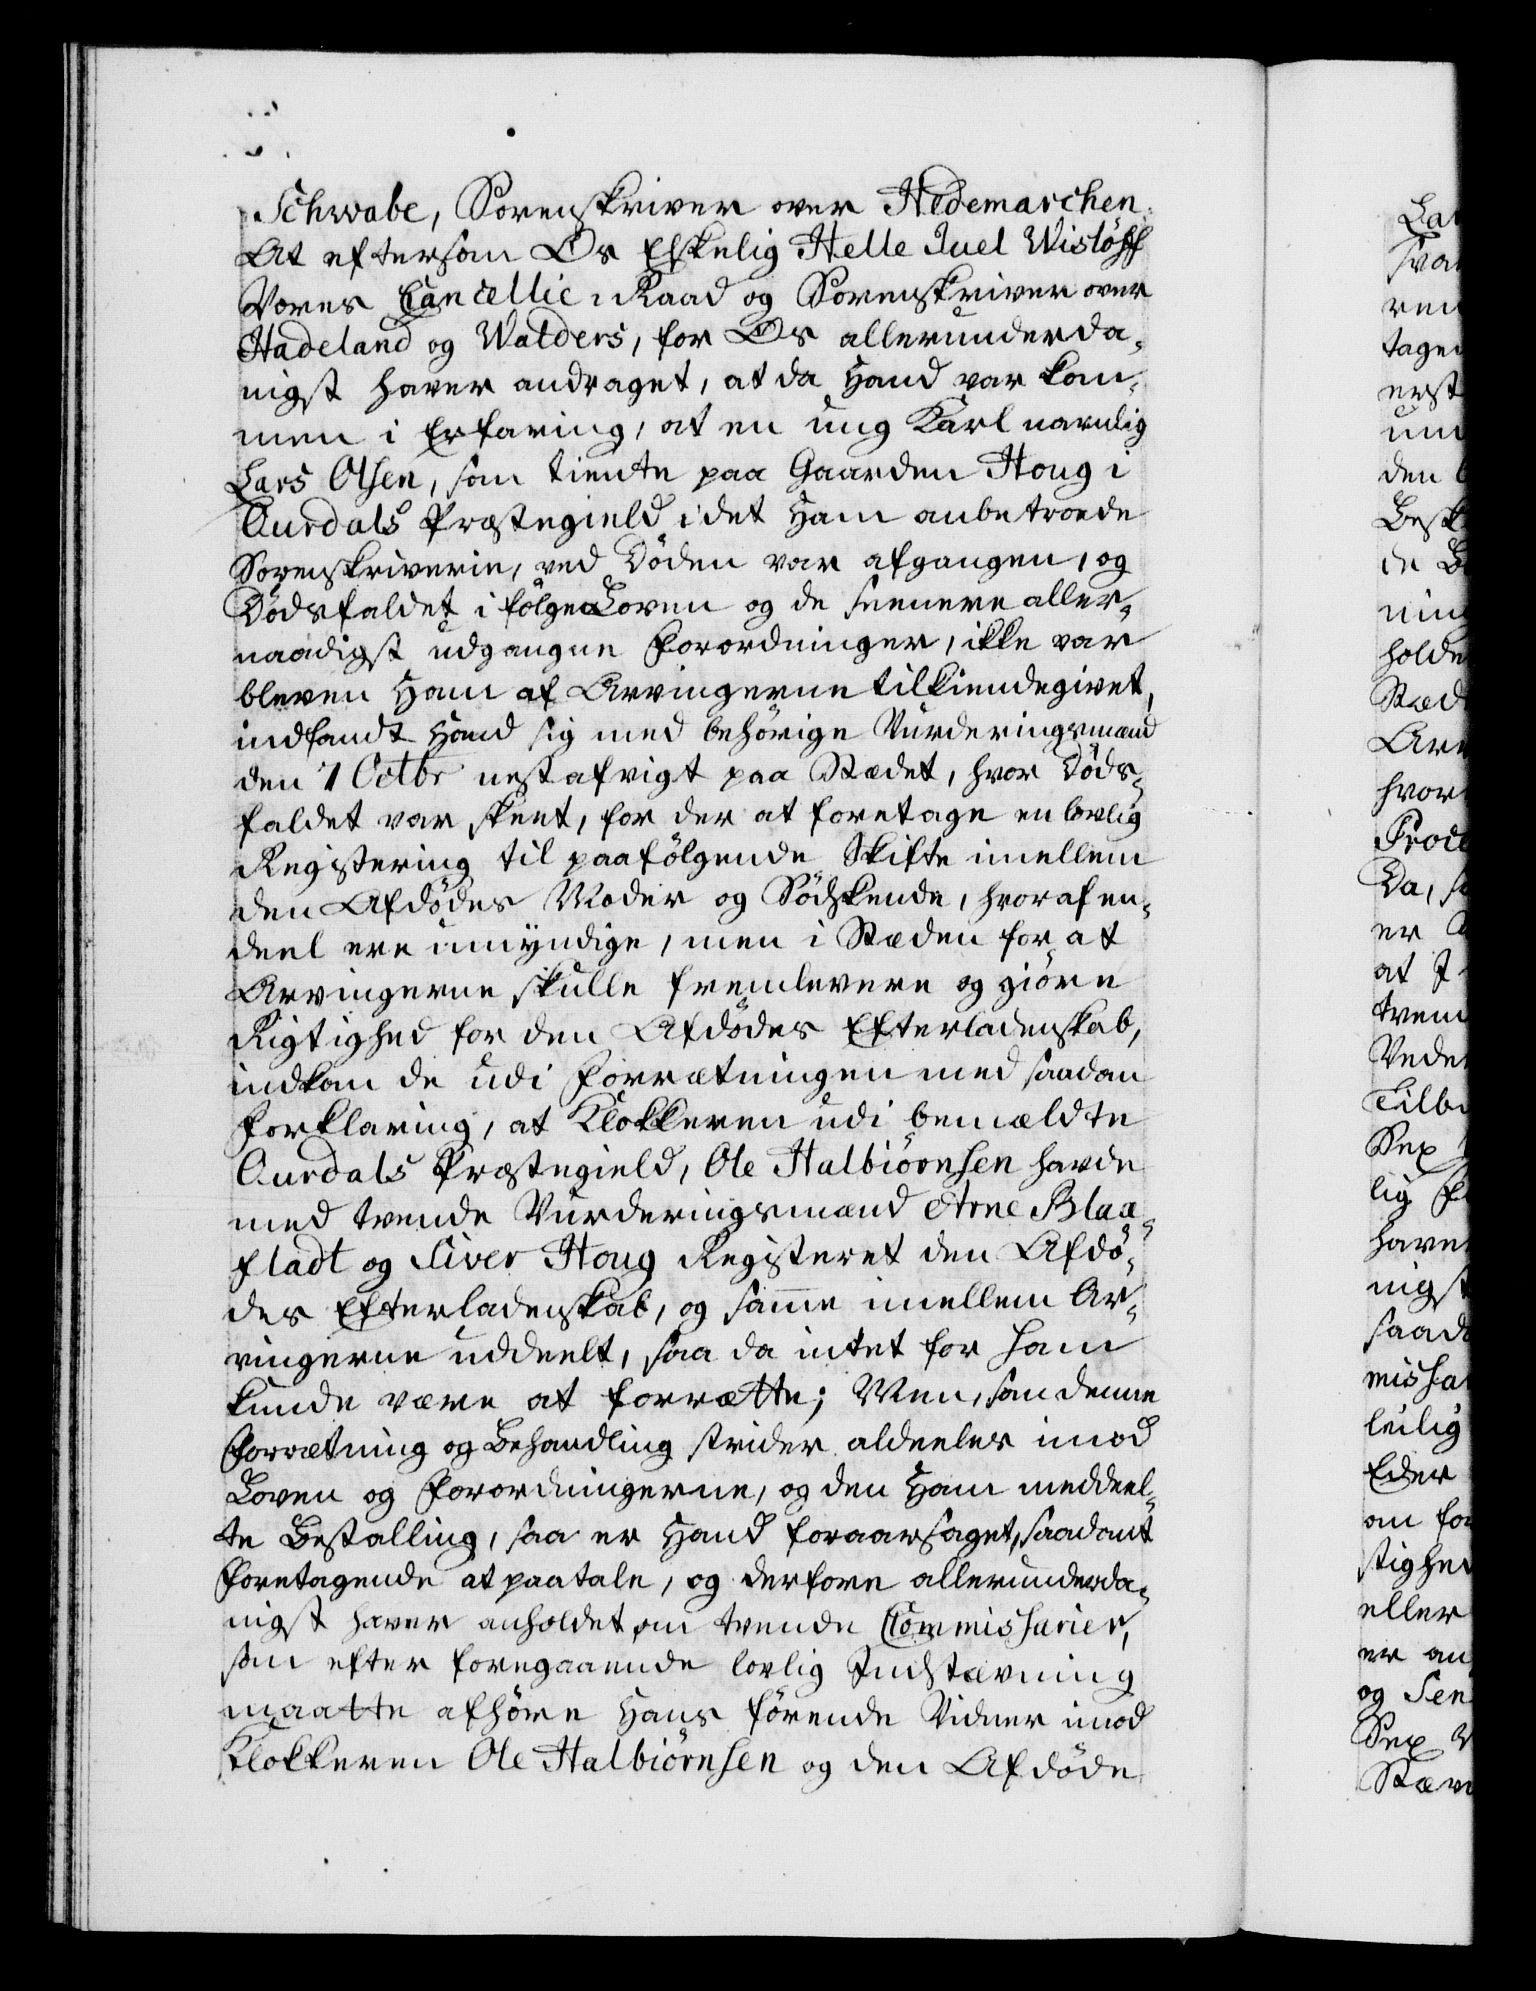 Schwabe, Sorenskriver over Hedemarchen
At eftersom Os Elskelig Helle Juel Wislöff
Vores Cancellie-Raad og Sorenskriver over
Hadeland og Walders, for Os allerunderda-
nigst haver andraget, at da Hand var kom-
men i Erfaring, at en ung Karl navnlig
Lars Olsen, som tiente paa Gaarden Houg i
Ourdals Præstegield i det Ham anbetroede
Sorenskriverie, ved Döden var afgangen, og
Dödsfaldet i fölge Loven og de seenere aller-
naadigst udgangne Forordninger, ikke var
bleven Ham af Arvingerne tilkiendegivet,
indfandt Hand sig med behörige Vurderingsmænd
den 7 Octbr nestafvigt paa Stædet, hvor Döds-
faldet var skeet, for der at foretage en lovlig
Registering til paafölgende Skifte imellem
den Afdödes Moder og Södskende, hvoraf en-
deel ere umyndige, men i Stæden for at
Arvingerne skulle fremlevere og giöre
Rigtighed for den Afdödes Efterladenskab,
indkom de udi Forrætningen med saadan
Forklaring, at Klokkeren udi bemældte
Ourdals Præstegield, Ole Halbiörnsen havde
med tvende Vurderingsmænd Arne Blaa-
fladt og Siver Houg Registeret den Afdö-
des Efterladenskab, og samme imellem Ar-
vingerne uddeelt, saa da intet for ham
kunde være at forrætte; Men, som denne
Forrætning og Behandling strider aldeeles imod
Loven og Forordningerne, og den Ham meddeel-
te Bestalling, saa er Hand foraarsaget, saadant
Foretagende at paatale, og derfore allerunderda-
nigst haver anholdet om tvende Commissarier,
som efter foregaaende lovlig Indstævning
maatte afhöre Hans förende Vidner imod
Klokkeren Ole Halbiörnsen og den Afdöde